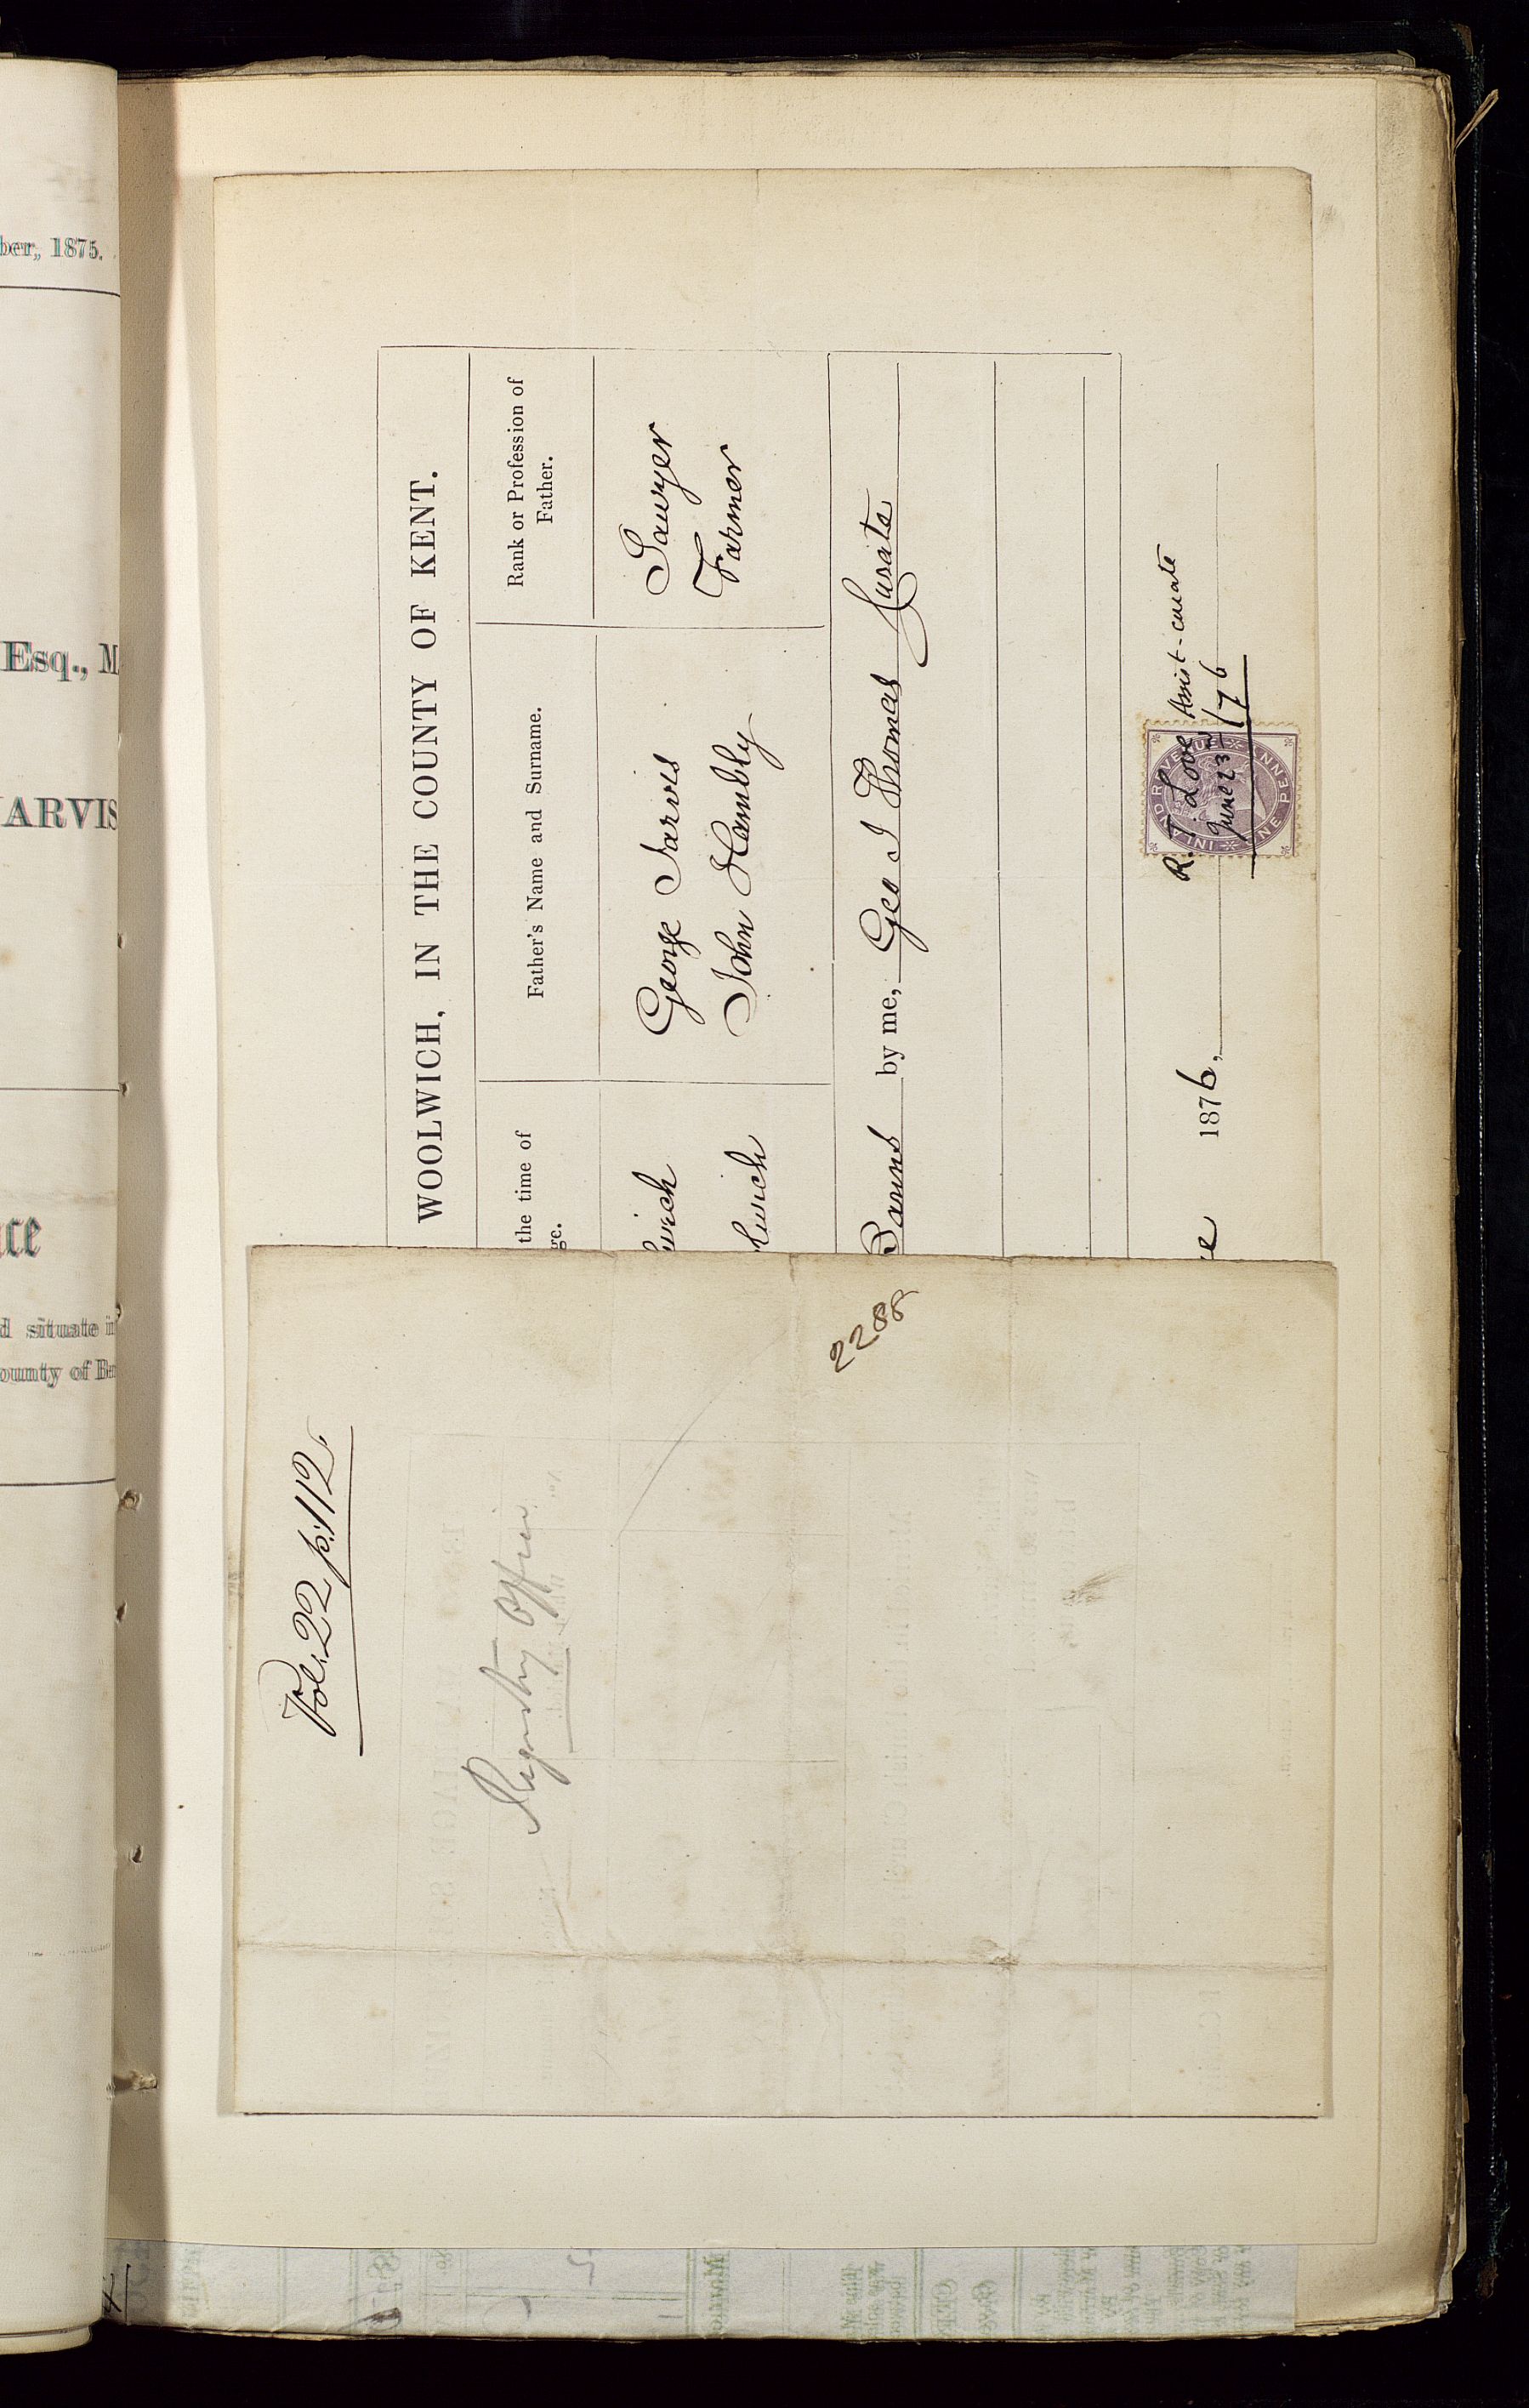 ber,, 1875.
Esq., M
JARVIS
ce
d situate in
ounty of Be
WOOLWICH, IN THE COUNTY OF KENT.
the time of
ge.
Father's Name and Surname.
Rank or Profession of
Father.
wich
George Jarvis
Sawyer
lwich
John Hambly
Farmer
Banns by me, Geo J Thomas Curate
e 1876,
R. T. Love Assist-curate
June 23rd /76
INLAND REVENUE
ONE PENNY
Vol. 22 p. 112.
Registry Office
2288